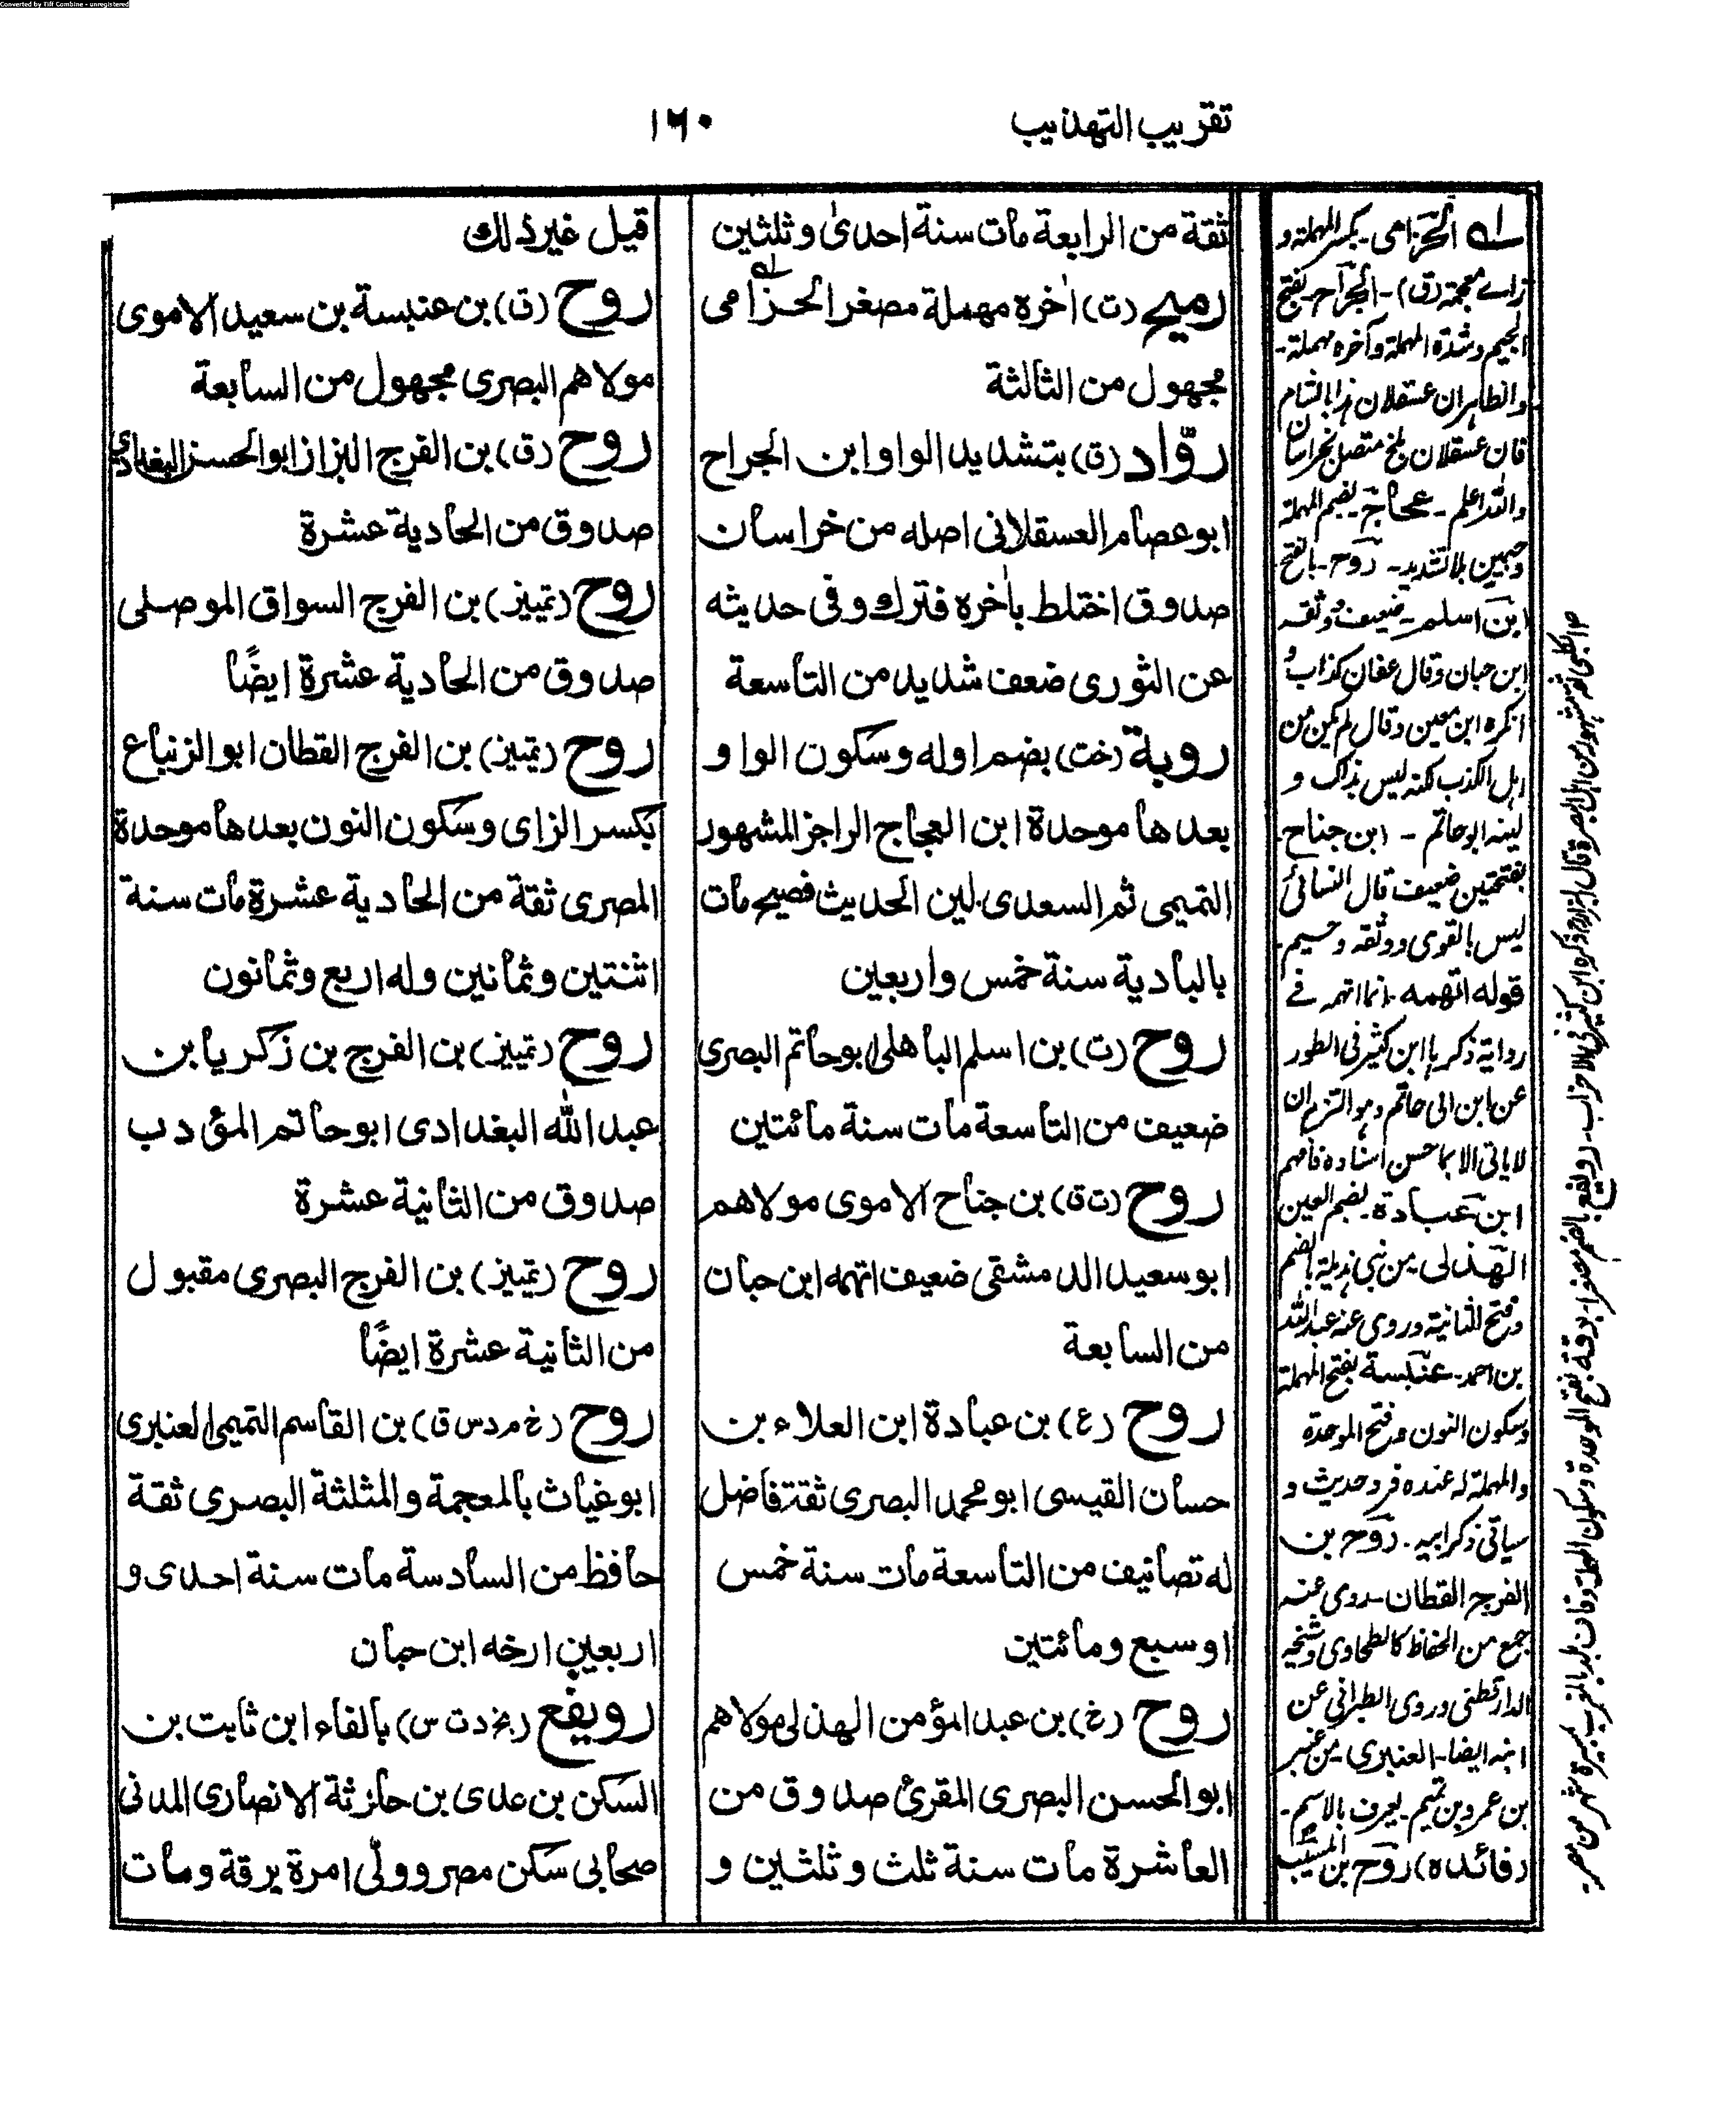 Converted by Tiff Combine - unregistered
تقريب التهذيب
١٦٠
ثقة من الرابعة مات سنة احدى وثلثين
رميح (ت) اخره مهملة مصغر الحزامى
مجهول من الثالثة
روّاد (ق) بتشديد الواو ابن الجراح
ابو عصام العسقلانى اصله من خراسان
صدوق اختلط باخره فترك وفى حديثه
عن الثورى ضعف شديد من التاسعة
روبة (خت) بضم اوله وسكون الواو
بعدها موحدة ابن العجاج الراجز المشهور
التميمى ثم السعدى لين الحديث فصيح مات
بالبادية سنة خمس واربعين
روح (ت) بن اسلم الباهلى ابو حاتم البصرى
ضعيف من التاسعة مات سنة مائتين
روح (ت ق) بن جناح الاموى مولاهم
ابو سعيد الدمشقى ضعيف اتهمه ابن حبان
من السابعة
روح (ع) بن عبادة ابن العلاء بن
حسان القيسى ابو محمد البصرى ثقة فاضل
له تصانيف من التاسعة مات سنة خمس
او سبع ومائتين
روح (خ) بن عبد المؤمن الهذلى مولاهم
ابو الحسن البصرى المقرئ صدوق من
العاشرة مات سنة ثلث وثلثين و
قيل غير ذلك
روح (ق) بن عنبسة بن سعيد الاموى
مولاهم البصرى مجهول من السابعة
روح (ق) بن الفرج البزاز ابو الحسن البغدادى
صدوق من الحادية عشرة
روح (تمييز) بن الفرج السواق الموصلى
صدوق من الحادية عشرة ايضًا
روح (تمييز) بن الفرج القطان ابو الزنباع
بكسر الزاى وسكون النون بعدها موحدة
المصرى ثقة من الحادية عشرة مات سنة
اثنتين وثمانين وله اربع وثمانون
روح (تمييز) بن الفرج بن زكريا بن
عبد الله البغدادى ابو حاتم المؤدب
صدوق من الثانية عشرة
روح (تمييز) بن الفرج البصرى مقبول
من الثانية عشرة ايضًا
روح (خ م د س ق) بن القاسم التميمى العنبرى
ابو غياث بالمعجمة والمثلثة البصرى ثقة
حافظ من السادسة مات سنة احدى و
اربعين ارخه ابن حبان
رويفع (بخ د ت س) بالفاء ابن ثابت بن
السكن بن عدى بن حارثة الانصارى المدنى
صحابى سكن مصر وولّى امرة برقة ومات
له الحزامى ـ بكسر المهملة و
زاے معجمة (ق) ـ الجراح ـ بفتح
الجيم وشدة المهملة وآخره مهملة ـ
والظاهر ان عسقلان هذا بالشام
فان عسقلان بلخ متصل بخراسان
والله اعلم ـ عجاج ـ بضم المهملة
وجيمين بلا تشديد ـ روح ـ بالفتح
ابن اسلم ـ ضعيف وثقه
ابن حبان وقال عفان كذاب و
انكره ابن معين وقال لم يكن من
اهل الكذب لكنه ليس بذاك و
لينه ابو حاتم ـ ابن جناح ـ
بفتحتين ضعيف قال النسائى
ليس بالقوى ووثقه دحيم ـ
قوله اتهمه ـ انما اتهم فے
رواية ذكرها ابن كثير فى الطور
عن ابن ابى حاتم وهو التزم ان
لا ياتى الا بما حسن اسناده فافهم
ابن عبادة ـ بضم العين
الهذلى ـ من بنى هذيلة بالضم
وفتح الثانية وروى عنه عبد الله
بن احمد ـ عنبسة بفتح المهملة
وسكون النون وفتح الموحدة
والمهملة له عنده فرد حديث و
سياتى ذكر ابيه ـ روح بن
الفرج القطان ـ روى عنه
جمع من الحفاظ كالطحاوى وشيخيه
الدارقطنى وروى الطبرانى عن
ابنه ايضا ـ العنبرى ـ من عنبر
بن عمرو بن تميم ـ يعرف بالاسم ـ
(فائده) روح بن المسيب
الكلبى مشهور من اهل البصرة قال البزار ذكره ابن كثير فى الاحزاب ـ رويفع بالضم مصغرا ـ برقة بفتح الموحدة وسكون المهملة وقاف بلد بالمغرب